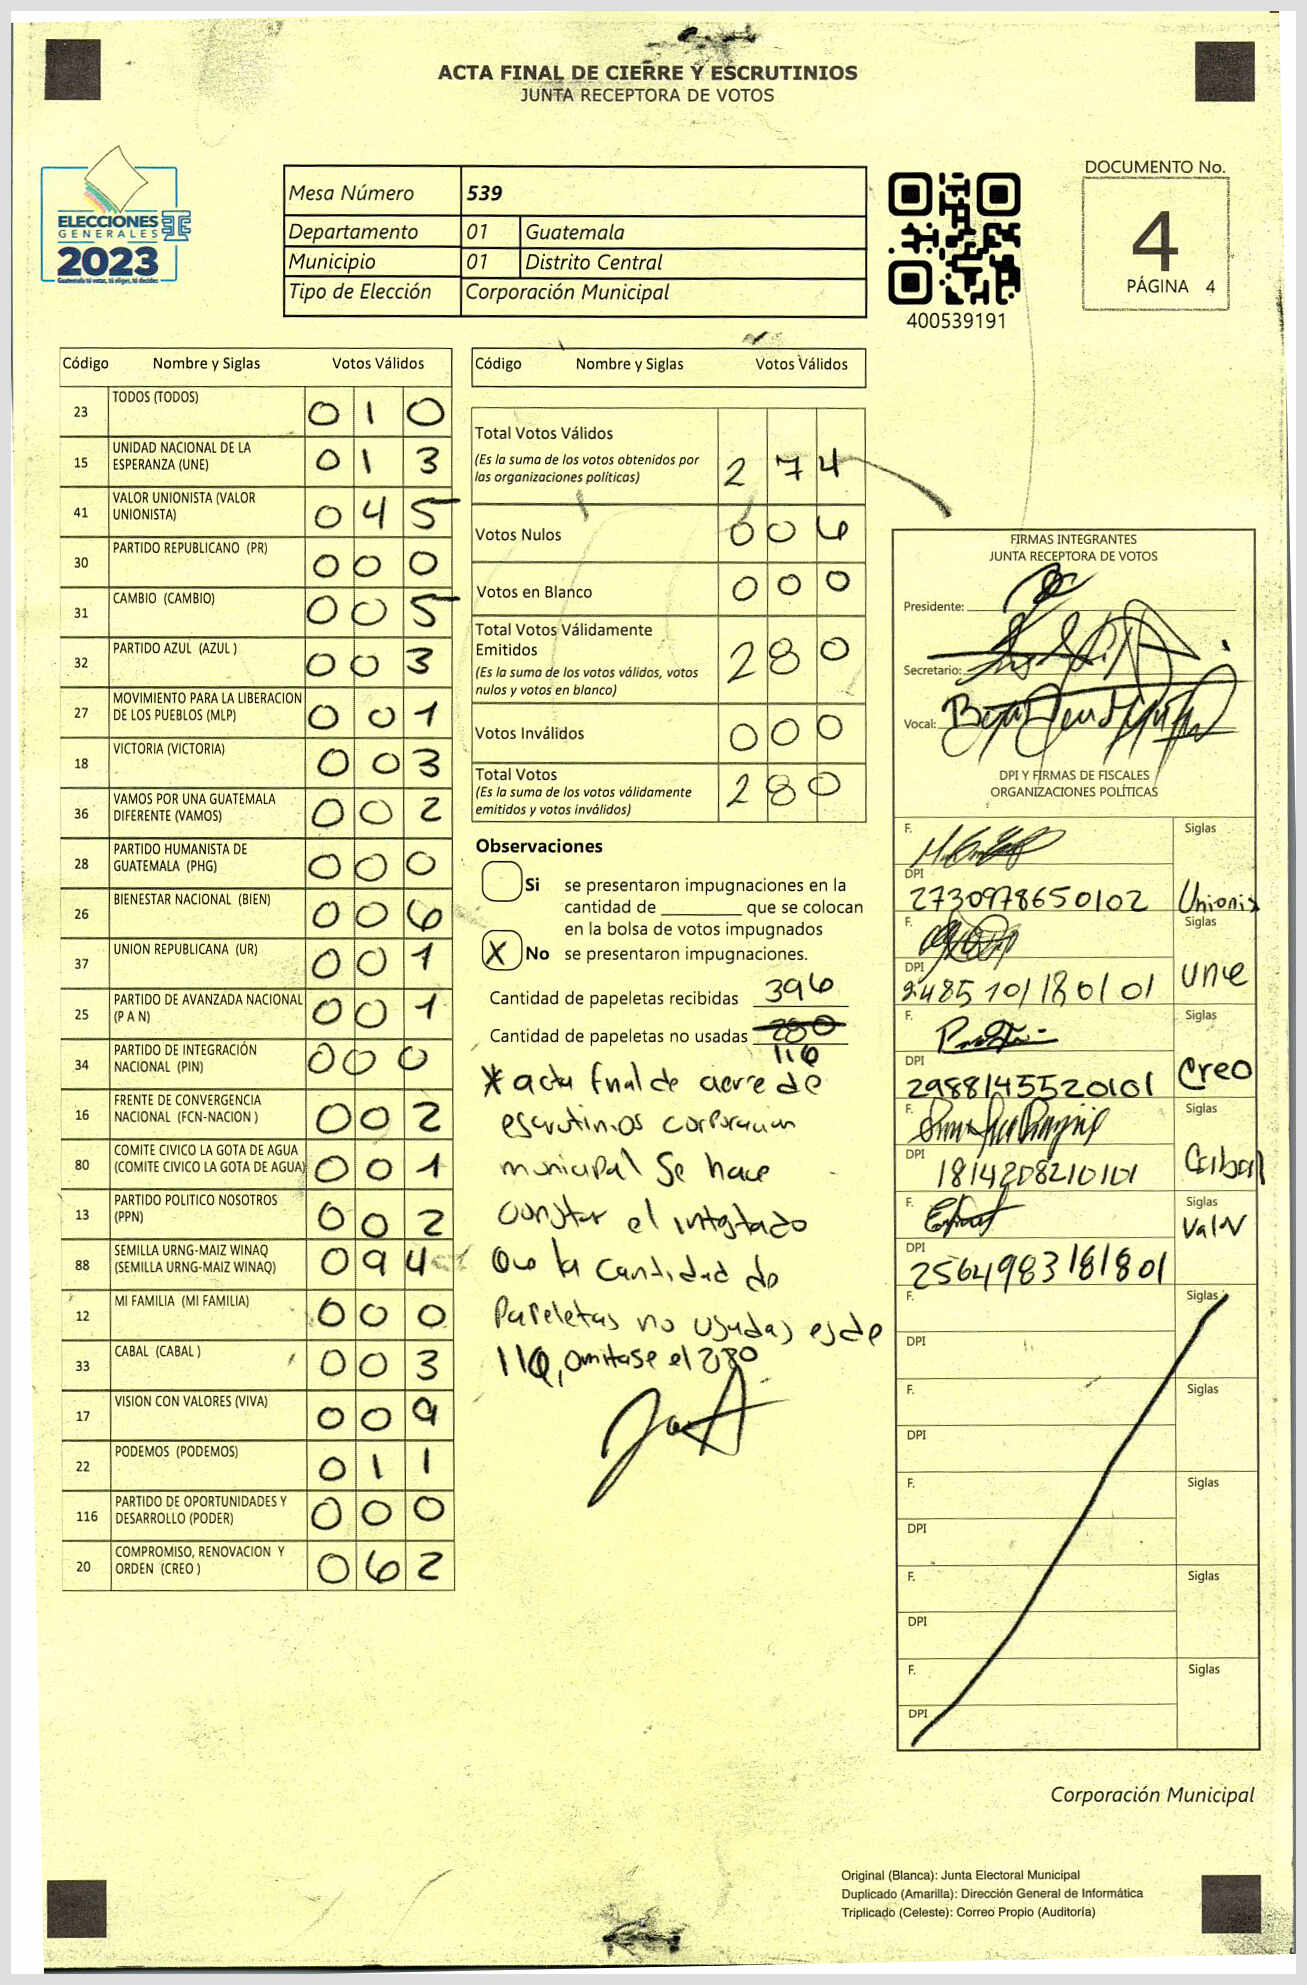 ACTA FINAL DE CIERRE Y ESCRUTINIOS
JUNTA RECEPTORA DE VOTOS
ELECCIONES
GENERALES
2023
Guatemala tú votas, tú eliges, tú decides
Mesa Número 539
Departamento 01 Guatemala
Municipio 01 Distrito Central
Tipo de Elección Corporación Municipal
400539191
DOCUMENTO No.
4
PÁGINA 4
Código Nombre y Siglas Votos Válidos
23 TODOS (TODOS) 0 1 0
15 UNIDAD NACIONAL DE LA ESPERANZA (UNE) 0 1 3
41 VALOR UNIONISTA (VALOR UNIONISTA) 0 4 5
30 PARTIDO REPUBLICANO (PR) 0 0 0
31 CAMBIO (CAMBIO) 0 0 5
32 PARTIDO AZUL (AZUL ) 0 0 3
27 MOVIMIENTO PARA LA LIBERACION DE LOS PUEBLOS (MLP) 0 0 1
18 VICTORIA (VICTORIA) 0 0 3
36 VAMOS POR UNA GUATEMALA DIFERENTE (VAMOS) 0 0 2
28 PARTIDO HUMANISTA DE GUATEMALA (PHG) 0 0 0
26 BIENESTAR NACIONAL (BIEN) 0 0 6
37 UNION REPUBLICANA (UR) 0 0 1
25 PARTIDO DE AVANZADA NACIONAL (P A N) 0 0 1
34 PARTIDO DE INTEGRACIÓN NACIONAL (PIN) 0 0 0
16 FRENTE DE CONVERGENCIA NACIONAL (FCN-NACION ) 0 0 2
80 COMITE CIVICO LA GOTA DE AGUA (COMITE CIVICO LA GOTA DE AGUA) 0 0 1
13 PARTIDO POLITICO NOSOTROS (PPN) 0 0 2
88 SEMILLA URNG-MAIZ WINAQ (SEMILLA URNG-MAIZ WINAQ) 0 9 4
12 MI FAMILIA (MI FAMILIA) 0 0 0
33 CABAL (CABAL ) 0 0 3
17 VISION CON VALORES (VIVA) 0 0 9
22 PODEMOS (PODEMOS) 0 1 1
116 PARTIDO DE OPORTUNIDADES Y DESARROLLO (PODER) 0 0 0
20 COMPROMISO, RENOVACION Y ORDEN (CREO ) 0 6 2
Código Nombre y Siglas Votos Válidos
Total Votos Válidos 2 7 4
(Es la suma de los votos obtenidos por
las organizaciones políticas)
Votos Nulos 0 0 6
Votos en Blanco 0 0 0
Total Votos Válidamente
Emitidos 2 8 0
(Es la suma de los votos válidos, votos
nulos y votos en blanco)
Votos Inválidos 0 0 0
Total Votos 2 8 0
(Es la suma de los votos válidamente
emitidos y votos inválidos)
Observaciones
Si se presentaron impugnaciones en la
cantidad de ________ que se colocan
en la bolsa de votos impugnados
X No se presentaron impugnaciones.
Cantidad de papeletas recibidas 396
Cantidad de papeletas no usadas 280
116
* acta final de cierre de
escrutinios corporacion
municipal Se hace
constar el
Que la cantidad de
Papeletas no usadas es de
116, omitase el 280
FIRMAS INTEGRANTES
JUNTA RECEPTORA DE VOTOS
Presidente:
Secretario:
Vocal:
DPI Y FIRMAS DE FISCALES
ORGANIZACIONES POLÍTICAS
F. Siglas
DPI 2730978650102 Unionis
F. Siglas
DPI 2485101180101 une
F. Siglas
DPI 2988145520101 Creo
F. Siglas
DPI 1814208210101 Cabal
F. Siglas
DPI 2564983181801 Valor
F. Siglas
DPI
F. Siglas
DPI
F. Siglas
DPI
F. Siglas
DPI
F. Siglas
DPI
Corporación Municipal
Original (Blanca): Junta Electoral Municipal
Duplicado (Amarilla): Dirección General de Informática
Triplicado (Celeste): Correo Propio (Auditoría)